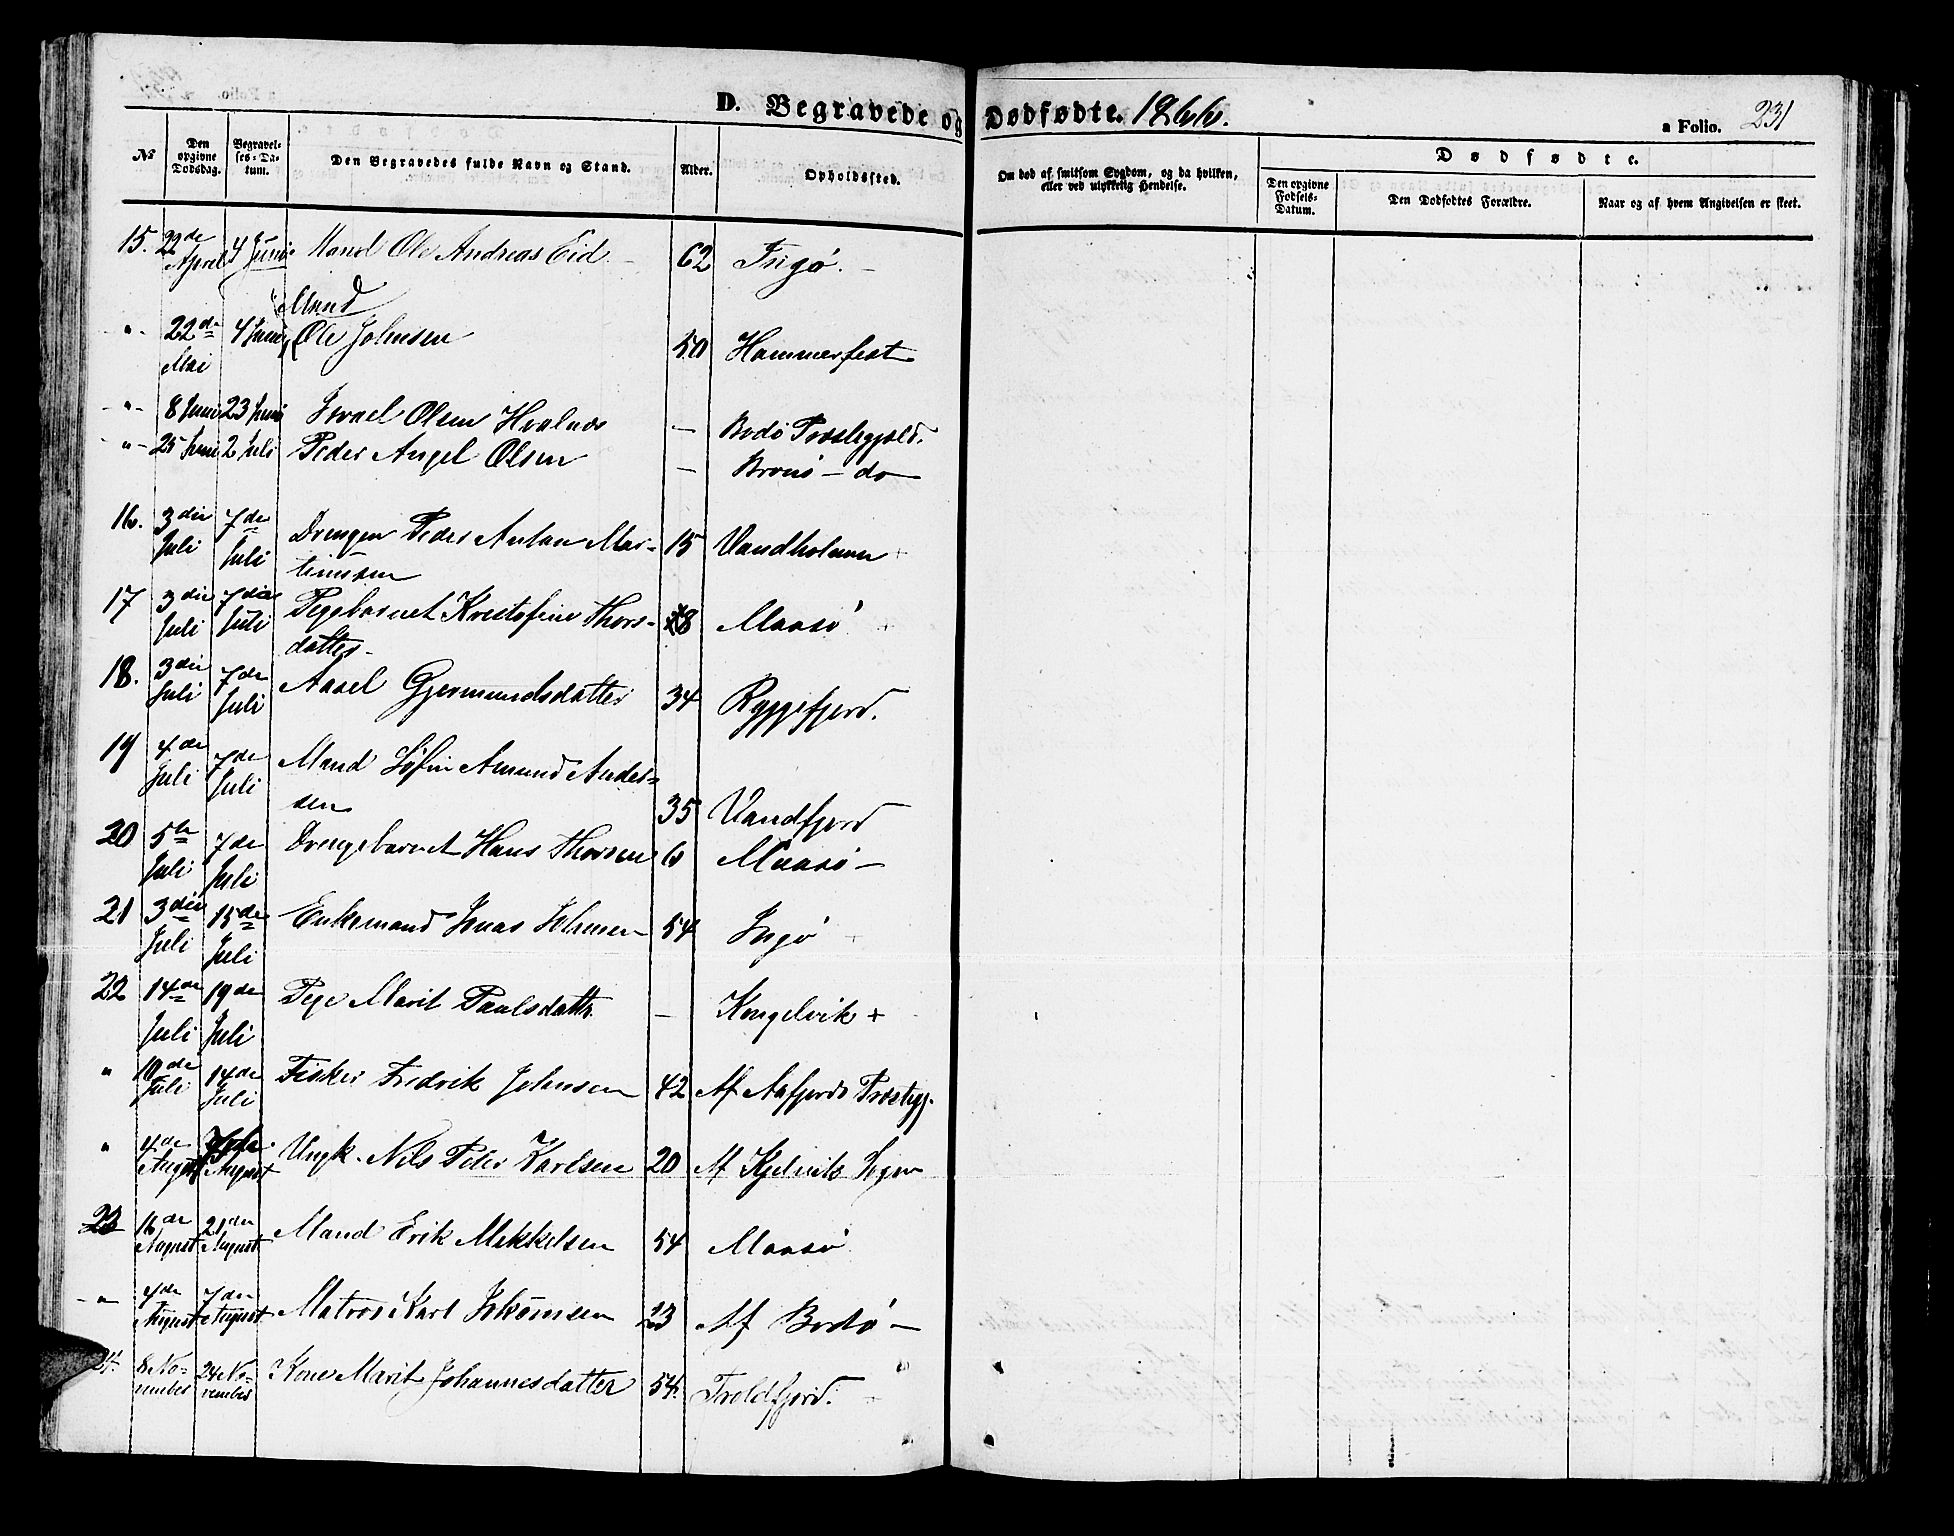 D. Begravede og Dødfødte. 1866.
a Folio. 231
No
Den opgivne Dødsdag.
Begravelses-Datum.
Den Begravedes fulde Navn og Stand.
Alder.
Opholdssted.
Om død af smitsom Sygdom, og da hvilken, eller ved ulykkelig Hendelse.
Dødfødte.
Den opgivne Fødsels-Datum.
Den Dødfødtes Forældre.
Naar og af hvem Angivelsen er skeet.
15. 22de April 4 Juni Mand Ole Andreas Eid 62 Ingø.
" 22de Mai 4 Juni Mand Ole Johnsen 50 Hammerfest
" 8 Juni 23 Juni Israel Olsen Hvalnæs — Bodø Præstegjæld.
" 25 Juni 2 Juli Peder Angel Olsen — Brønø — do
16. 3die Juli 7de Juli Drengen Peder Anton Mar-
tinussen 15 Vandholmen +
17 3die Juli 7de Juli Pigebarnet Kristofine Thors-
datter 8 Maasø +
18. 3die Juli 7de Juli Aasel Gjermundsdatter 34 Ryggefjord.
19 4de Juli 7de Juli Mand Amund Ander-
sen 35 Vandfjord
20 5te Juli 7de Juli Drengebarnet Hans Thorsen 6 Maasø —
21 3die Juli 15de Juli Enkemand Jonas Johnsen 54 Ingø +
22 14de Juli 19de Juli Pige Marit Paulsdattr. — Kongelvik +
" 10de Juli 14de Juli Fisker Fredrik Johnsen 42 Af Aafjords Præstegj.
" 4de August August Ungk. Nils Peter Karlsen 20 Af Kjelviks Sogn
23 16de August 21de August Mand Erik Mikkelsen 54 Maasø
" 4de August 7de August Matros Karl 23 Af Bodø —
24. 8 No-
vember 24 No-
vember Kone Marit Johannesdatter 54. Troldfjord. +